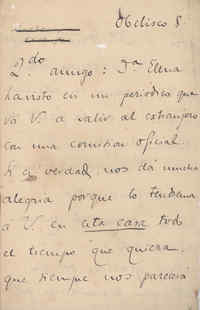 Obelisco 8.
Qdo amigo: Da Elena
ha visto en un periodico que
vá V. a salir al extrangero
con una comision oficial.
Si es verdad, nos dá mucha
alegria porque lo tendrems
a V. en esta casa todo
el tiempo que quiera.
que siempre nos parecerá